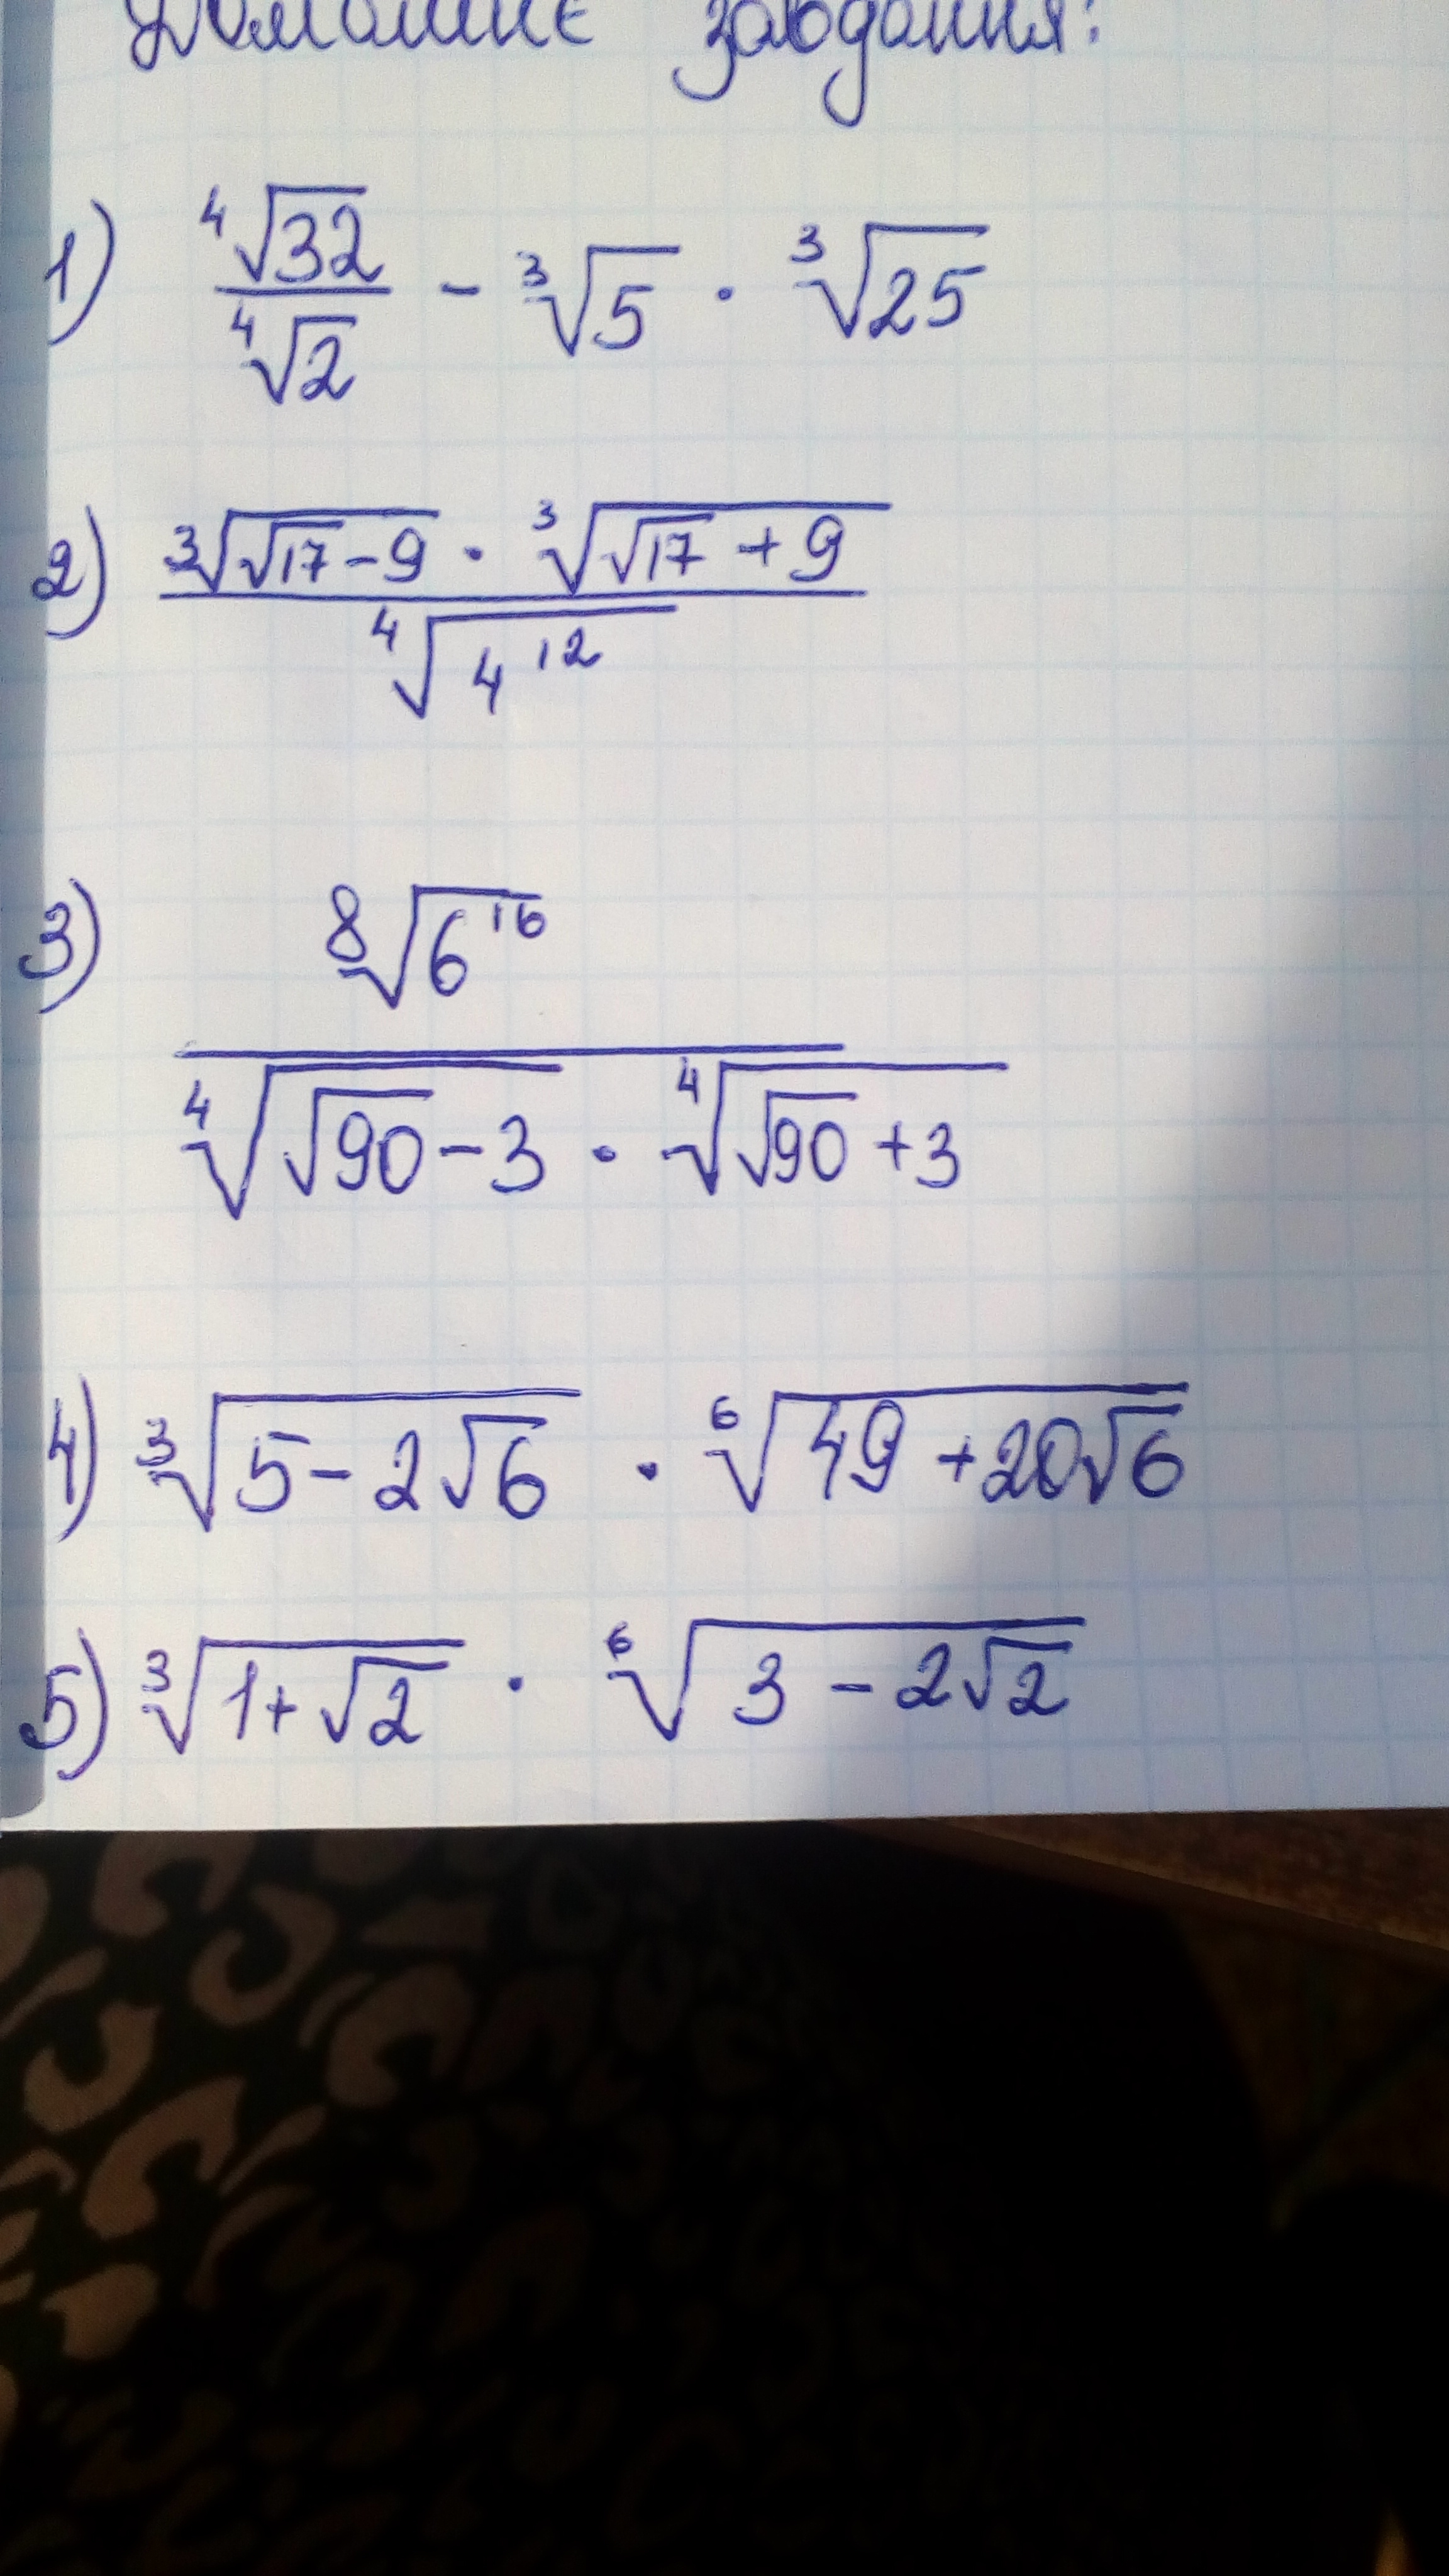 Домашнє завдання:
1) ⁴√32 / ⁴√2 - ³√5 · ³√25
2) ³√(√17 - 9) · ³√(√17 + 9) / ⁴√(4¹²)
3) ⁸√(6¹⁶) / (⁴√(√90 - 3) · ⁴√(√90 + 3))
4) ³√(5 - 2√6) · ⁶√(49 + 20√6)
5) ³√(1 + √2) · ⁶√(3 - 2√2)